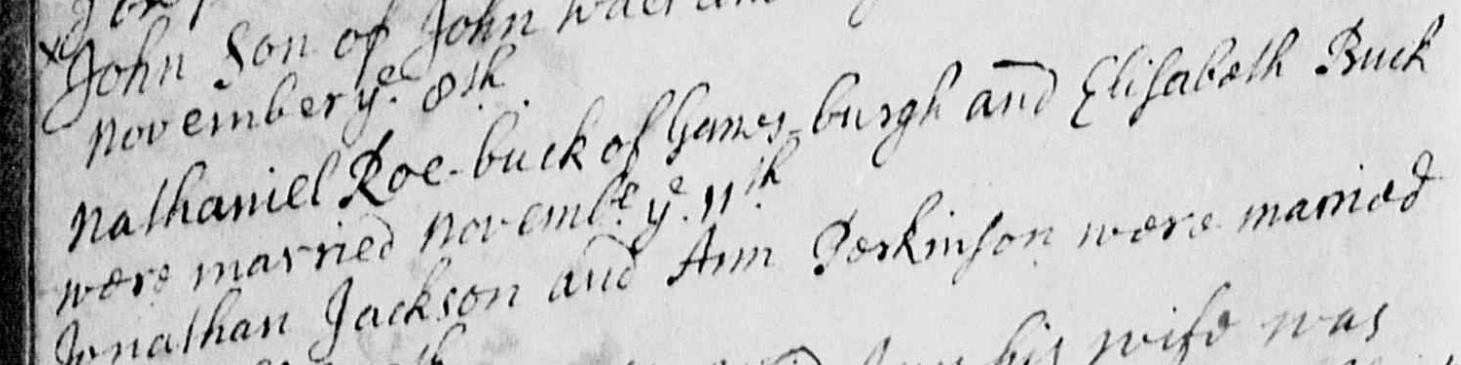 John Son of John
november yᵉ. 8th.
Nathaniel Roe-buck of Games-burgh and Elisabeth Buck
were married novembᵉ yᵉ. 11th
Jonathan Jackson and Ann Perkinson were married
his wife was